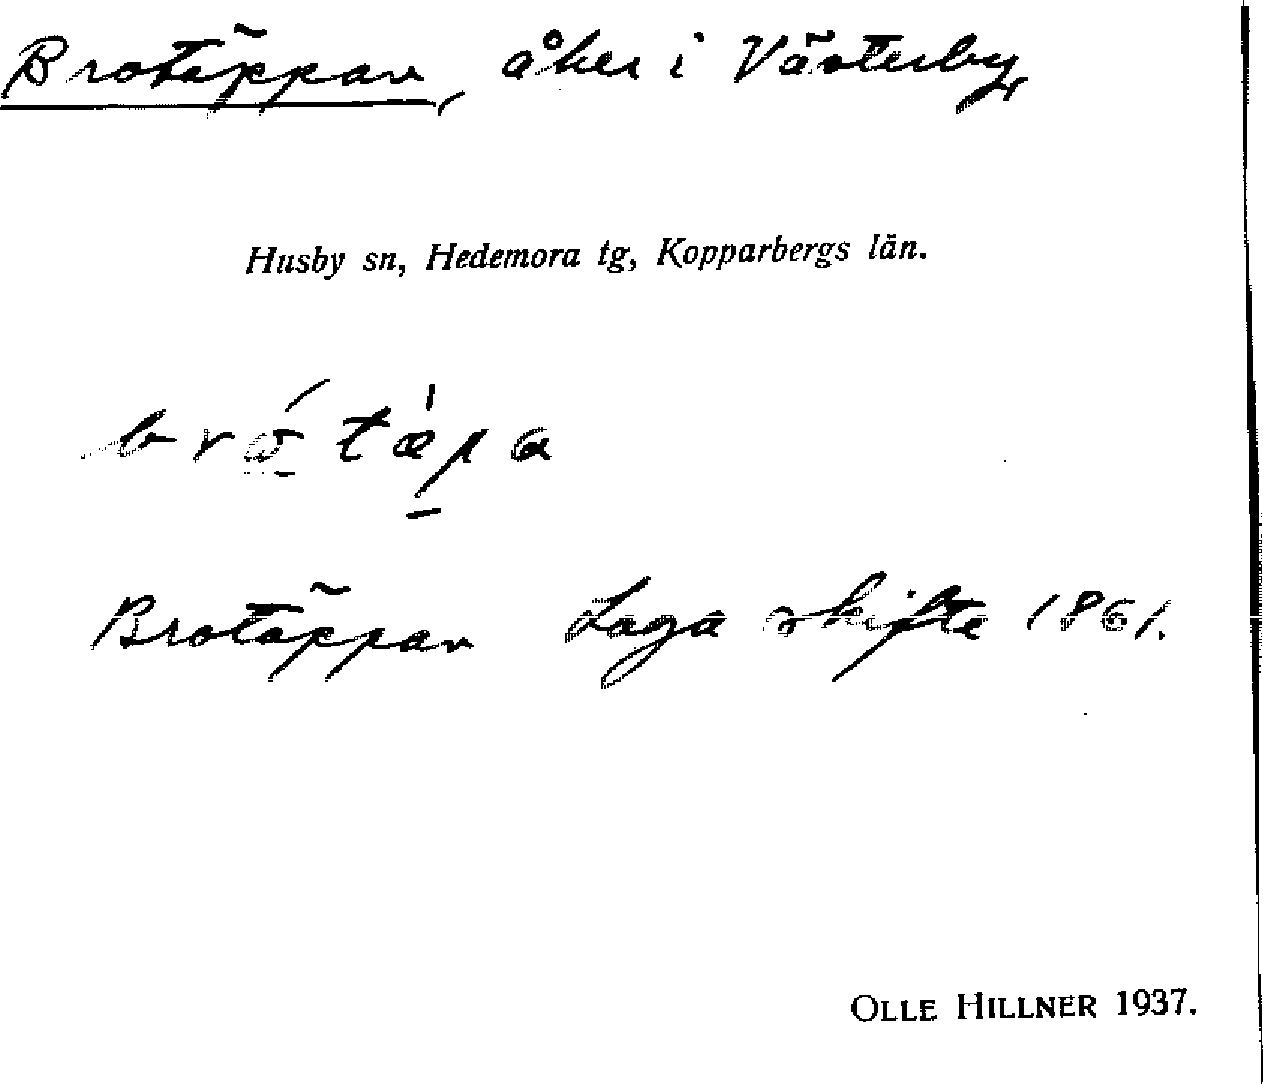 Brotäppan, åker i Västerby
Husby sn, Hedemora tg, Kopparbergs län.
brώ̲ tæ̀p̲a
Brotäppan Laga skifte 1861.
OLLE HILLNER 1937.